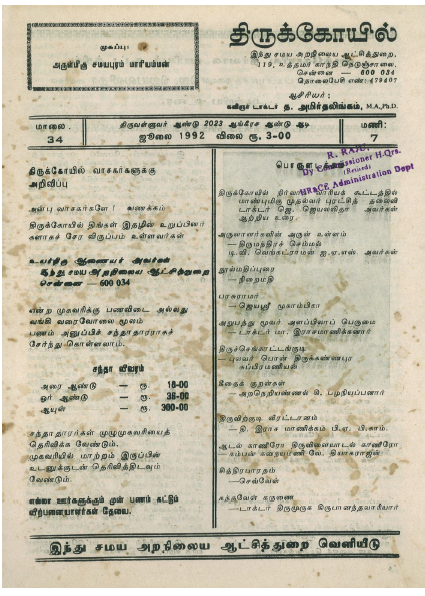 முகப்பு:
அருள்மிகு சமயபுரம் மாரியம்மன்
திருக்கோயில்
இந்து சமய அறநிலைய ஆட்சித்துறை,
119, உத்தமர் காந்தி நெடுஞ்சாலை,
சென்னை — 600 034
தொலைபேசி எண்: 479407
ஆசிரியர்:
கவிஞர் டாக்டர் த. அமிர்தலிங்கம், M.A.,Ph.D.
மாலை.
34
திருவள்ளுவர் ஆண்டு 2023 ஆங்கீரச ஆண்டு ஆடி
ஜூலை 1992 விலை ரூ. 3-00
மணி:
7
R. RAJU,
Dy Commissioner H.Qrs.
(Retired)
HR&CE Administration Dept
திருக்கோயில் வாசகர்களுக்கு
அறிவிப்பு
அன்பு வாசகர்களே! வணக்கம்
திருக்கோயில் திங்கள் இதழின் உறுப்பினர்
களாகச் சேர விருப்பம் உள்ளவர்கள்
உயர்திரு ஆணையர் அவர்கள்
இந்து சமய அறநிலைய ஆட்சித்துறை
சென்னை — 600 034
என்ற முகவரிக்கு பணவிடை அல்லது
வங்கி வரைவோலை மூலம்
பணம் அனுப்பிச் சந்தாதாரராகச்
சேர்ந்து கொள்ளலாம்.
சந்தா விவரம்
அரை ஆண்டு — ரூ. 18-00
ஓர் ஆண்டு — ரூ. 36-00
ஆயுள் — ரூ. 300-00
சந்தாதாரர்கள் முழுமுகவரியைத்
தெரிவிக்க வேண்டும்.
முகவரியில் மாற்றம் இருப்பின்
உடனுக்குடன் தெரிவித்திடவும்
வேண்டும்.
எல்லா ஊர்களுக்கும் முன் பணம் கட்டும்
விற்பனையாளர்கள் தேவை.
திருக்கோவில் நிர்வாக வாரியக் கூட்டத்தில்
மாண்புமிகு முதல்வர் புரட்சித் தலைவி
டாக்டர் ஜெ. ஜெயலலிதா அவர்கள்
ஆற்றிய உரை.
அருளாளர்களின் அருள் உள்ளம்
— திருமந்திரச் செம்மல்
டி.வி. வெங்கட்ராமன் ஐ.ஏ.எஸ் அவர்கள்
நூல்மதிப்புரை
— நிறைமதி
பரசுராமர்
— ஜெயஸ்ரீ மூகாம்பிகா
அறுபத்து மூவர் அளப்பிலாப் பெருமை
டாக்டர் மா. இராசமாணிக்கனார்
திருச்செங்காட்டங்குடி
— புலவர் பொன் திருக்கண்ணபுர
சுப்பிரமணியன்
கீதைக் குறள்கள்
அறநெறியண்ணல் கி. பழநியப்பனார்
திருவிற்குடி வீரட்டானம்
— தி. இராச மாணிக்கம் பி.ஏ. பி.காம்.
ஆடல் காணீரோ திருவிளையாடல் காணீரோ
— கம்பன் கவறயமணி வே. தியாகராஜன்
சித்திரபாரதம்
— செவ்வேள்
கந்தவேள் கருணை
— டாக்டர் திருமுருக கிருபானந்தவாரியார்
இந்து சமய அறநிலைய ஆட்சித்துறை வெளியீடு